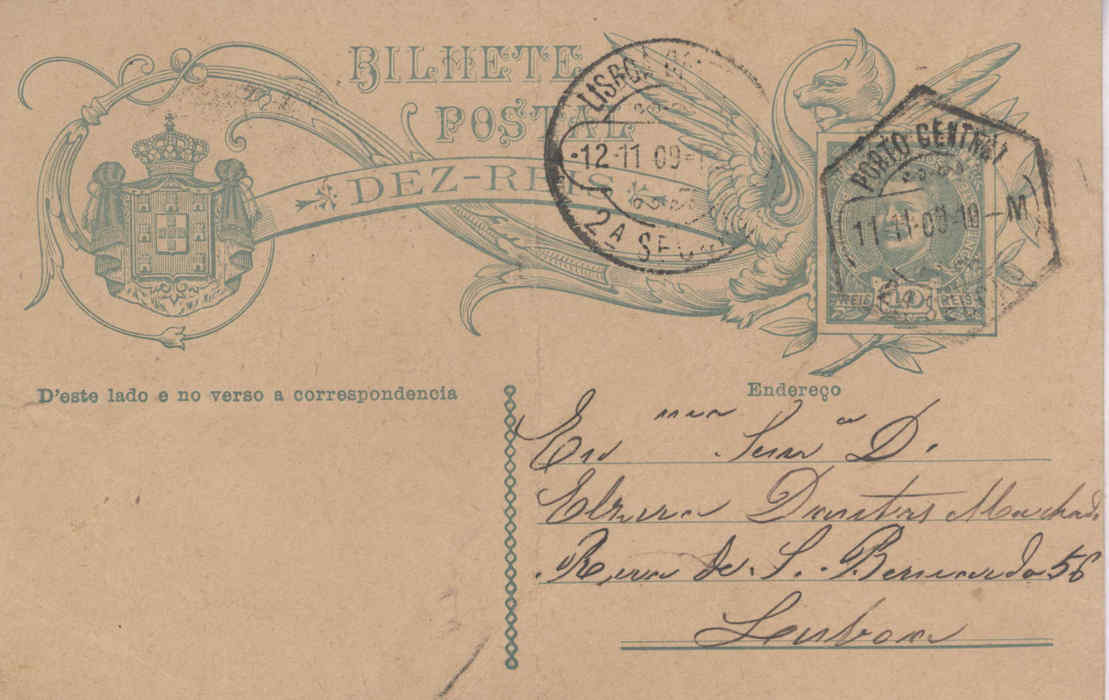 BILHETE
POSTAL
DEZ-REIS
LISBOA
12-11 09-1
2A SEC
PORTO CENTRAL
11-11-09-10-M
REIS 10 REIS
D'este lado e no verso a correspondencia
Endereço
Exma Snra D.
Elzira Dantas Machado
Rua de S. Bernardo 56
Lisboa